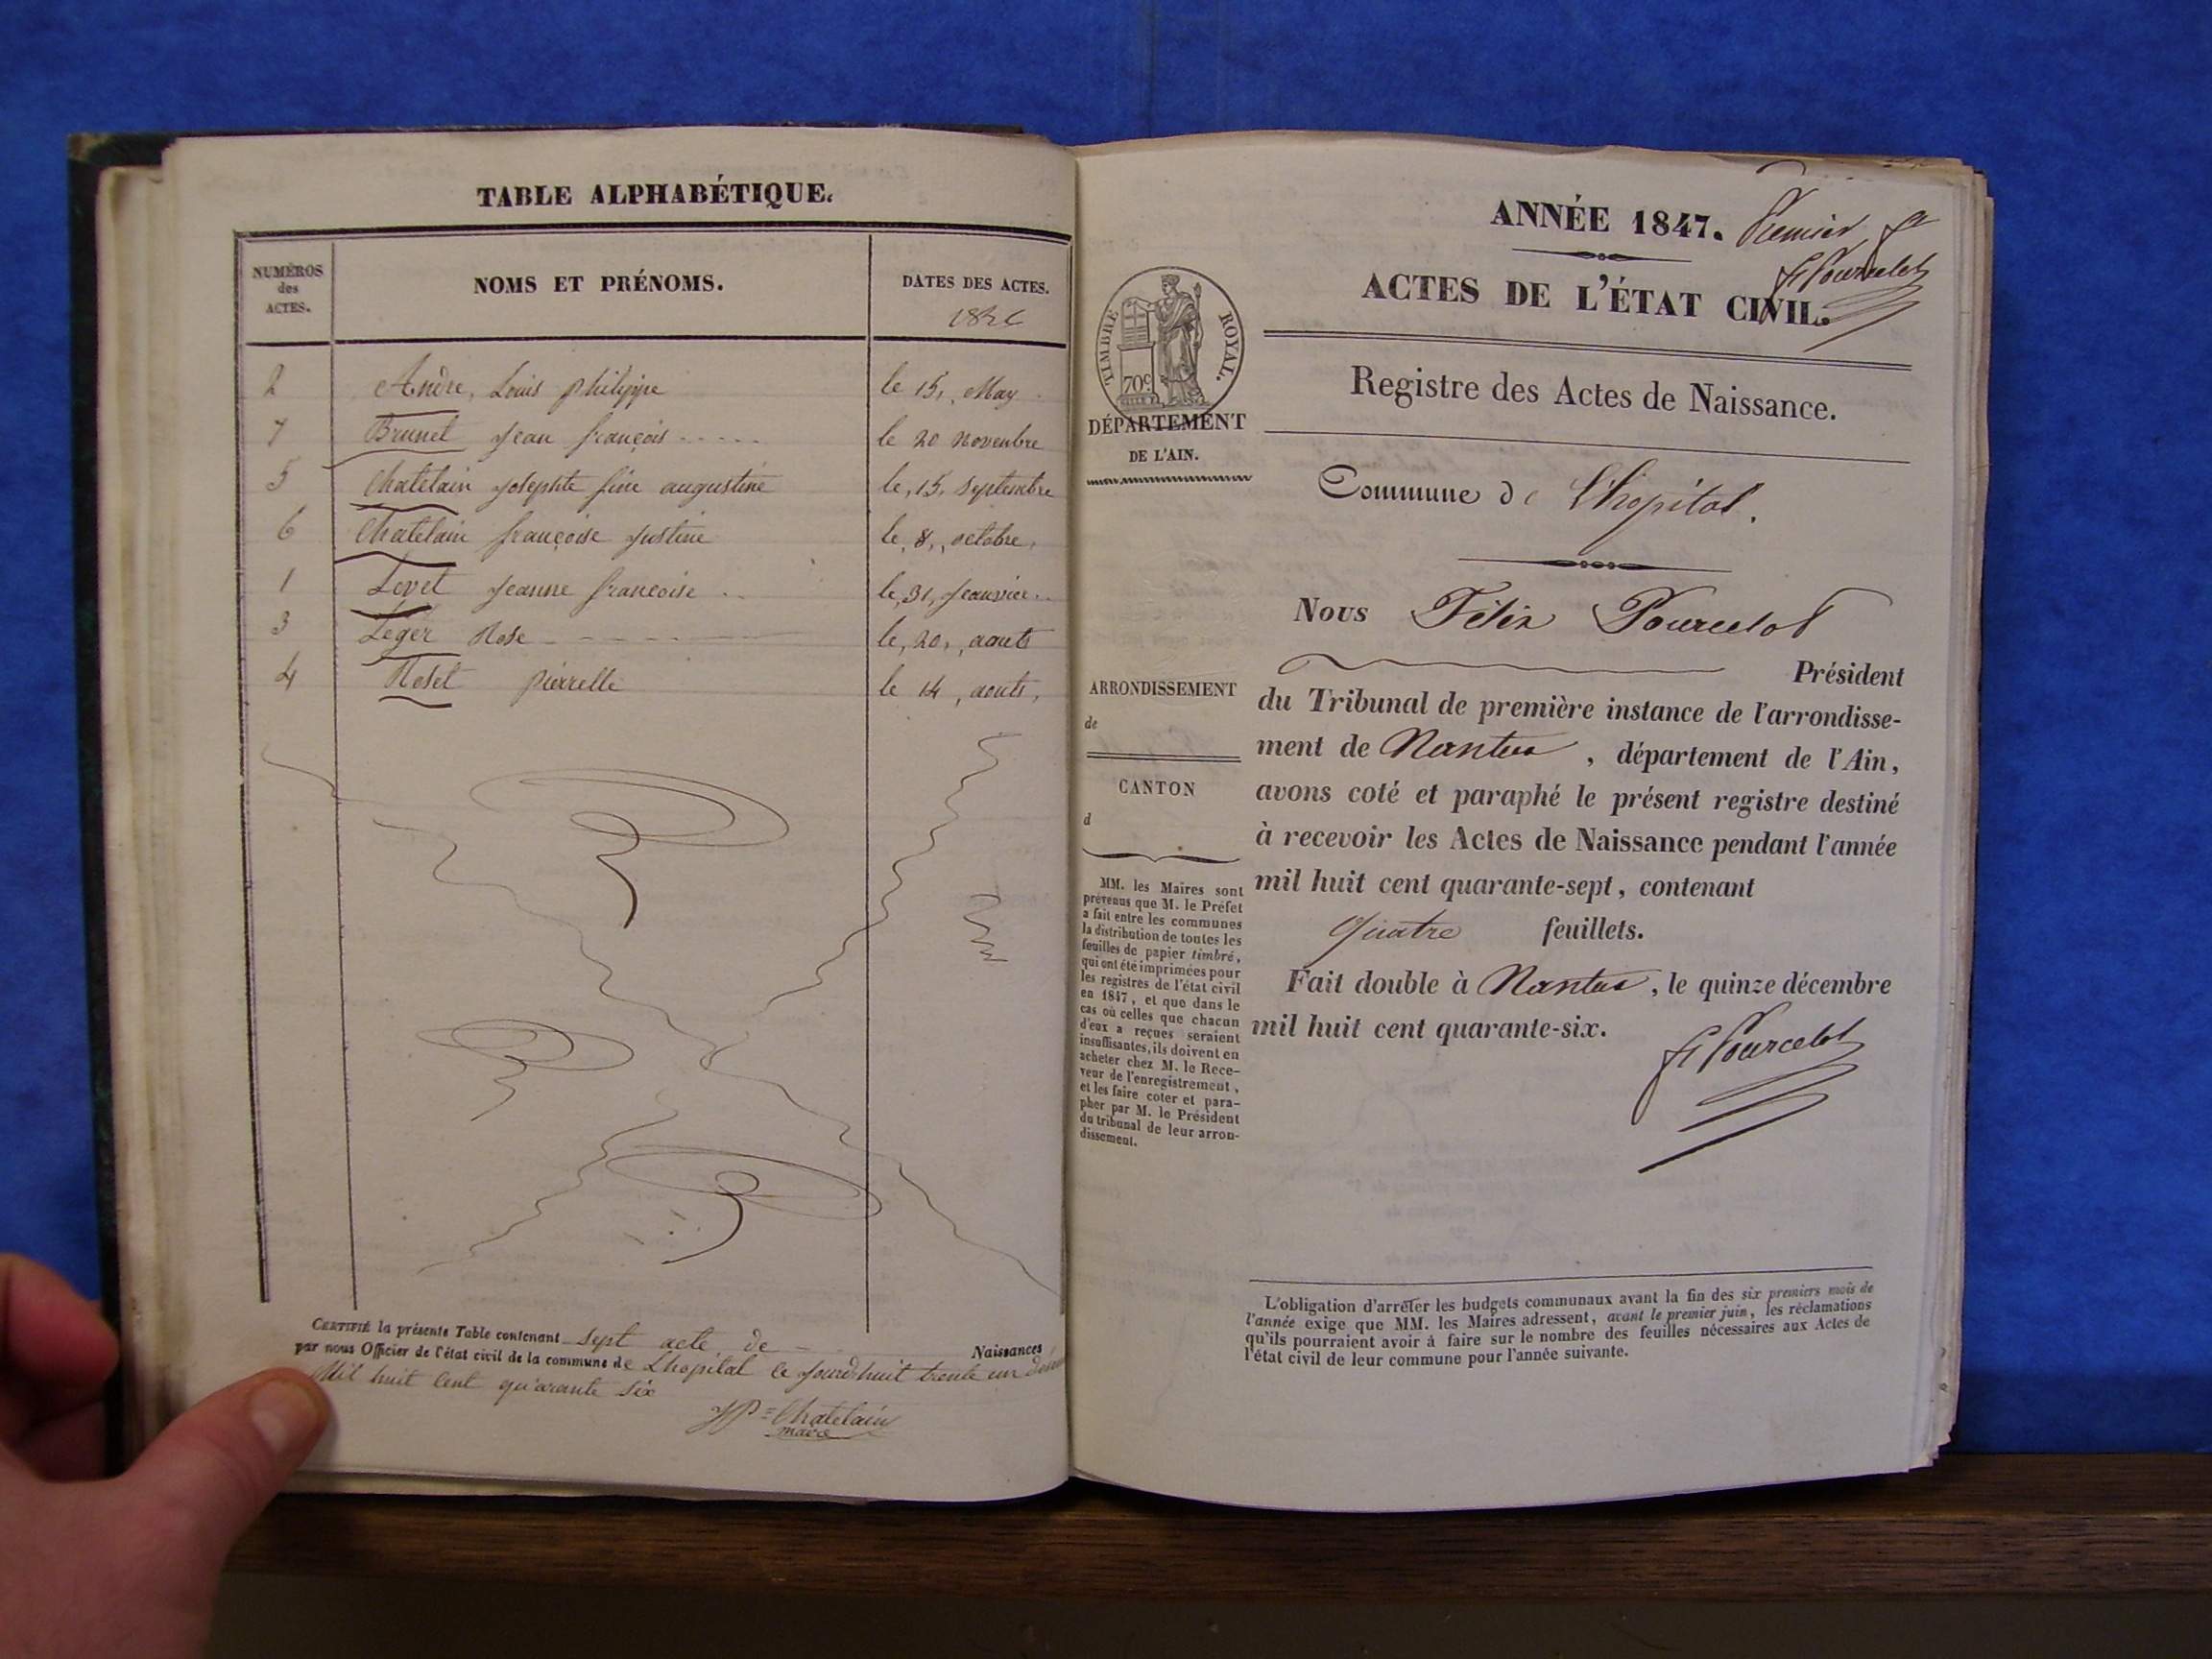 TABLE ALPHABÉTIQUE.
NUMÉROS
des
ACTES.
NOMS ET PRÉNOMS.
DATES DES ACTES.
2 Andre, Louis philippe le 15, May
7 Brunet Jean françois le 20 Novenbre
5 Chatelain josephte fine augustine le, 15, Septenbre
6 Chatelain françoise justine le, 8, octobre,
1 Levet jeanne francoise le, 31, jeanvier
3 Leger Rose le, 20, aouts
4 Roset pierrette le 14, aouts,
CERTIFIÉ la présente Table contenant Sept acte de Naissances
par nous Officier de l'état civil de la commune de Lhopital ce jourdhuit trente un
Mil huit Cent quarante Six
JP= Chatelain
maire
ANNÉE 1847. Premier
fx Pourcelot
ACTES DE L'ÉTAT CIVIL.
TIMBRE ROYAL.
70c
Registre des Actes de Naissance.
DÉPARTEMENT
DE L'AIN.
Commune de l'hopital.
Nous Félix Pourcelot
Président
ARRONDISSEMENT
de
CANTON
d
du Tribunal de première instance de l'arrondisse-
ment de Nantua, département de l'Ain,
avons coté et paraphé le présent registre destiné
à recevoir les Actes de Naissance pendant l'année
mil huit cent quarante-sept, contenant
quatre feuillets.
Fait double à Nantua, le quinze décembre
mil huit cent quarante-six.
fx Pourcelot
MM. les Maires sont
prévenus que M. le Préfet
a fait entre les communes
la distribution de toutes les
feuilles de papier timbré,
qui ont été imprimées pour
les registres de l'état civil
en 1847, et que dans le
cas où celles que chacun
d'eux a reçues seraient
insuffisantes, ils doivent en
acheter chez M. le Rece-
veur de l'enregistrement,
et les faire coter et para-
pher par M. le Président
du tribunal de leur arron-
dissement.
L'obligation d'arrêter les budgets communaux avant la fin des six premiers mois de
l'année exige que MM. les Maires adressent, avant le premier juin, les réclamations
qu'ils pourraient avoir à faire sur le nombre des feuilles nécessaires aux Actes de
l'état civil de leur commune pour l'année suivante.